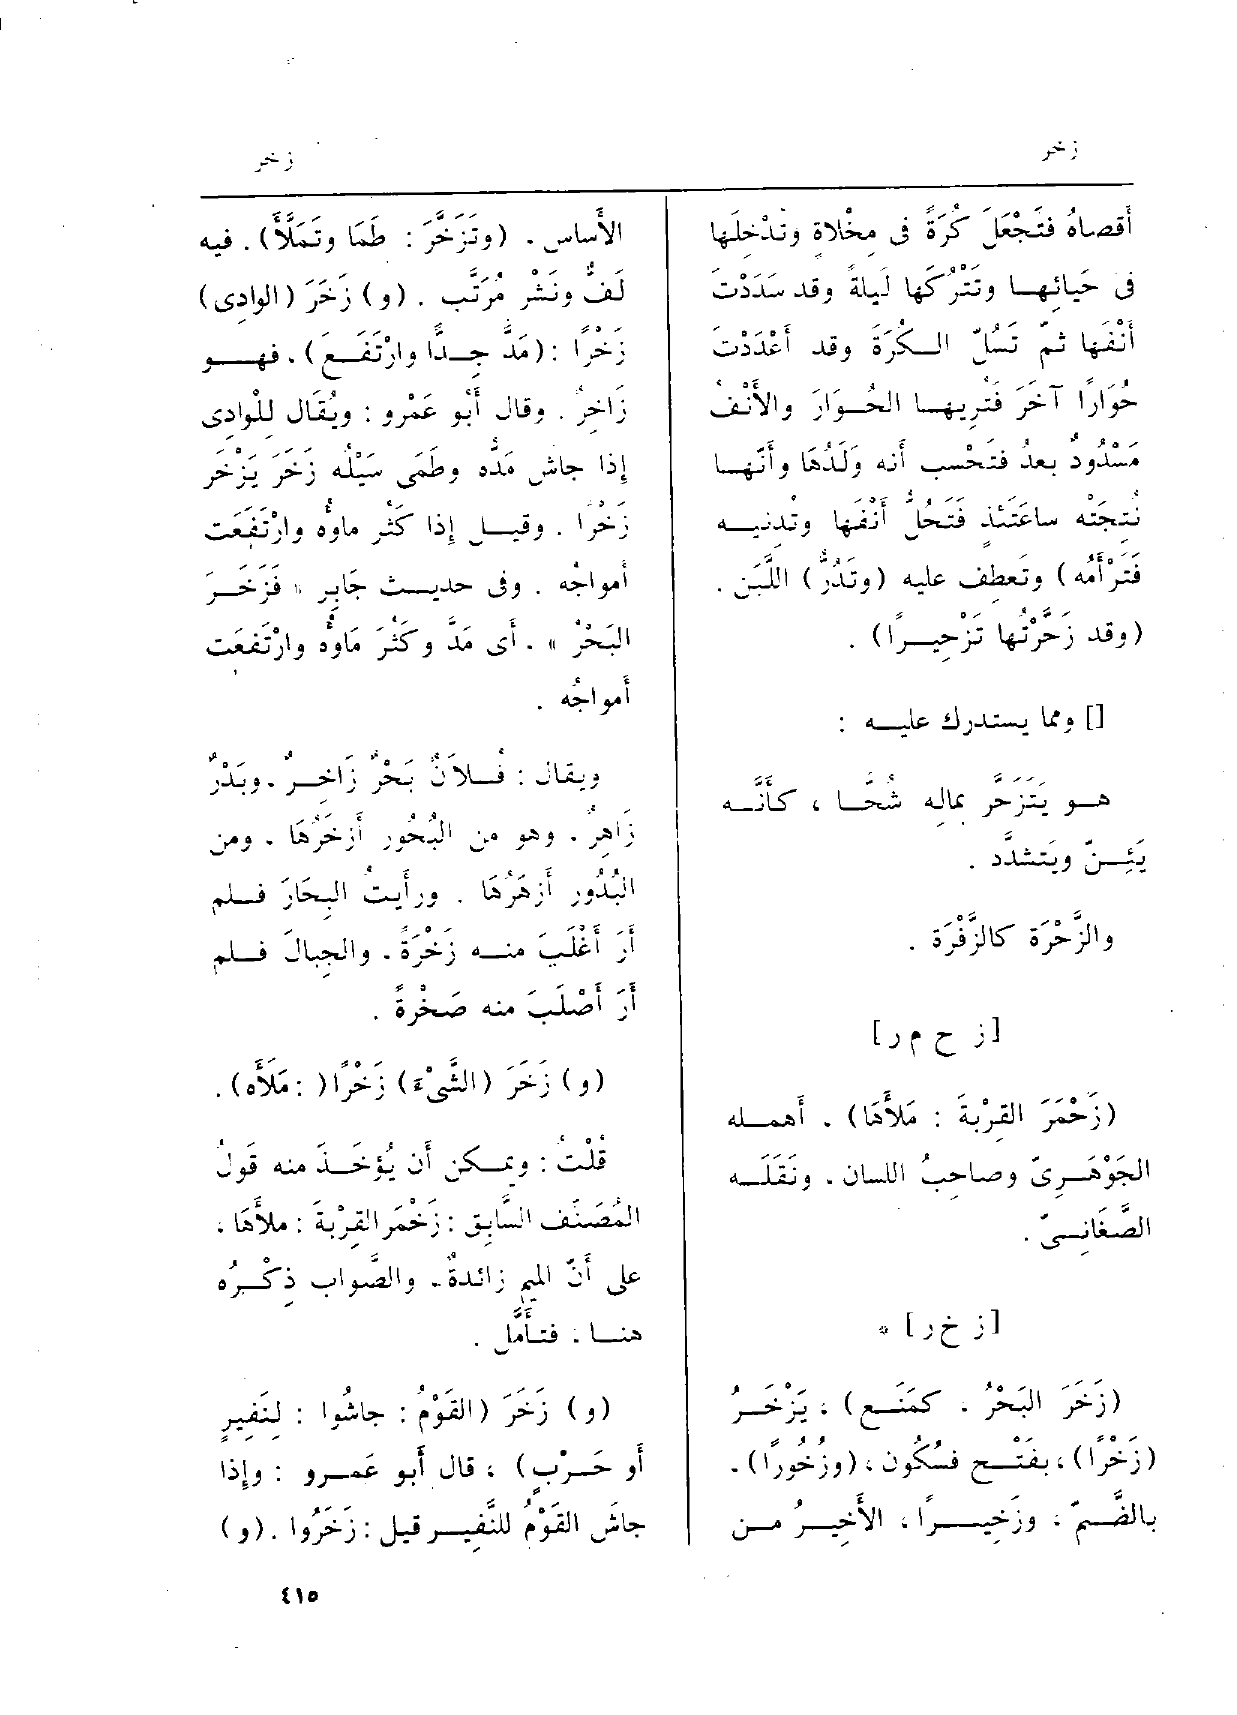 زخر
زخر
أقصاهُ فتَجْعَلَ كُرَةً فى مِخْلاة وتُدْخِلَها
فى حَيائها وتَتْرُكَها ليلةً وقد سَدَدْتَ
أنْفَها ثمّ تَسُلّ الكُرَةَ وقد أعْدَدْتَ
حُوَارًا آخَرَ فتُرِيها الحُوَارَ والأنْفُ
مَسْدُودٌ بعدُ فتَحْسب أنه وَلَدُهَا وأنّها
نُتِجَتْه ساعَتئذٍ فَتَحُلُّ أنْفَها وتُدنيه
فَتَرْأمُه) وتَعطِف عليه (وتَدُرُّ) اللَّبَن .
(وقد زَحَّرْتُها تَزْحِيرًا) .
[] ومما يستدرك عليه :
هو يَتَزَحَّر بمالِه شُحًّا ، كأنَّه
يَئِنّ ويَتَشدَّد .
والزَّحْرَة كالزَّفْرَة .
[ز ح م ر]
(زَحْمَرَ القِرْبةَ : مَلأَها) . أهمله
الجَوْهَرِىّ وصاحِبُ اللسان . ونَقَلَه
الصَّغَانِىّ .
[ز خ ر] *
(زَخَرَ البَحْرُ . كمَنَع) ، يَزْخَرُ
(زَخْرًا) ، بفَتْح فسُكُون ، (وزُخُورًا) .
بالضَّمّ ، وزَخِيرًا ، الأخِيرُ من
الأَساس . (وتَزَخَّرَ : طَمَا وتَمَلَّأَ) . فيه
لَفٌّ ونَشْر مُرَتَّب . (و) زَخَرَ (الوادِى)
زَخْرًا : (مَدَّ جِدًّا وارْتَفَع) . فهو
زَاخِرٌ . وقال أَبُو عَمْرو : ويُقَال للْوادِى
إذا جاش مَدُّه وطَمَى سَيْلُه زَخَرَ يَزْخَر
زَخْرًا . وقيل إذا كَثُر ماوُه وارْتَفَعت
أَمواجُه . وفى حديث جَابِر « فَزَخَرَ
البَحْرُ » . أَى مَدَّ وكَثُرَ مَاوُه وارْتَفَعَت
أَمواجُه .
ويقال : فُلاَنٌ بَحْرٌ زَاخِرٌ . وبَدْرٌ
زَاهِرٌ . وهو من البُحُور أَزخَرُهَا . ومن
البُدُور أَزهَرُهَا . ورأَيتُ البِحَارَ فلم
أَرَ أَغْلَبَ منه زَخْرَةً . والجِبالَ فلم
أَرَ أَصْلَبَ منه صَخْرةً .
(و) زَخَرَ (الشَّىْءَ) زَخْرًا( : مَلَأَه) .
قُلْتُ : ويمكن أَن يُؤخَذَ منه قَولُ
المُصَنِّف السَّابِق : زَخْمَر القِرْبةَ : ملأَهَا ،
على أَنّ الميم زائدةٌ . والصَّواب ذِكْرُه
هنا . فتأَمَّل .
(و) زَخَرَ (القَوْمُ : جاشُوا : لِنَفِيرٍ
أَو حَرْبٍ) ، قال أَبو عَمرو : وإِذا
جاشَ القَوْمُ للنَّفِير قيل : زَخَرُوا . (و)
٤١٥